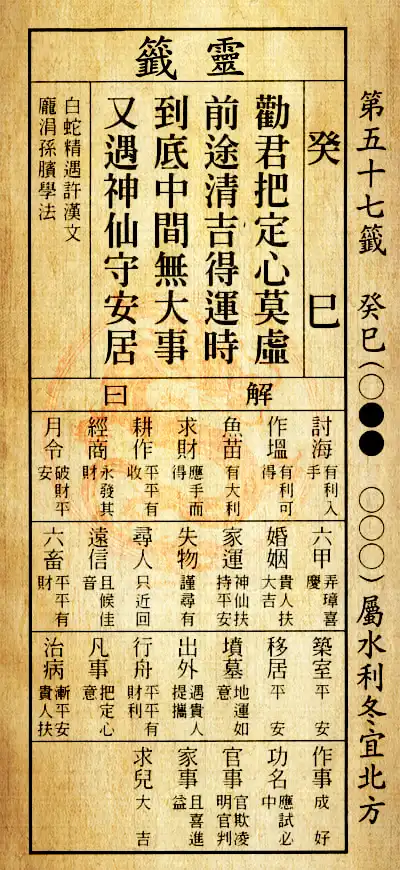 第五十七籤 癸巳(○●● ○○○)屬水利冬宜北方
靈籤
癸巳
勸君把定心莫虛
前途清吉得運時
到底中間無大事
又遇神仙守安居
白蛇精遇許漢文
龐涓孫臏學法
解曰
討海 有利入手
作塭 有利可得
魚苗 有大利
求財 應手而得
耕作 平平有收
經商 永發其財
月令 破財平安
六甲 弄璋喜慶
婚姻 貴人扶大吉
家運 神仙扶持平安
失物 謹尋有
尋人 只近回
遠信 且候佳音
六畜 平平有財
築室 平安
移居 平安
墳墓 地運如意
出外 遇貴人提攜
行舟 平平有財利
凡事 把定心意
治病 漸平安貴人扶
作事 成好
功名 應試必中
官事 官欺凌明官判
家事 且喜進益
求兒 大吉